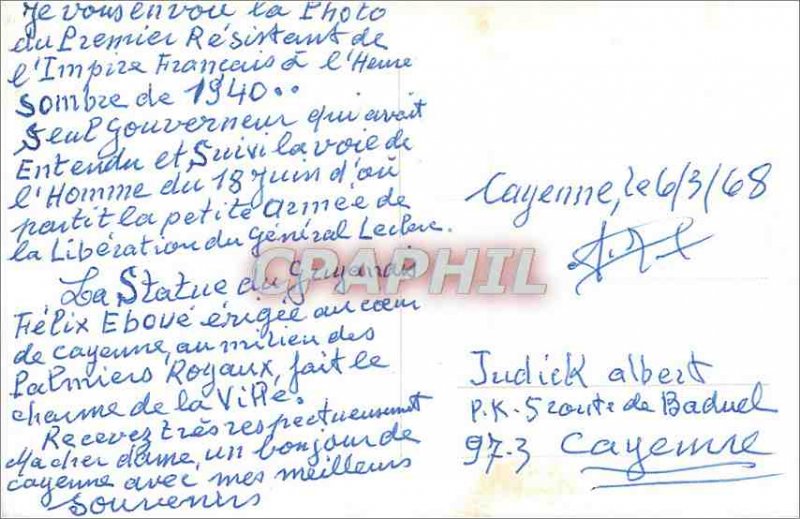 Je vous envoie la Photo
du Premier Résistant de
l'Impire Français à l'Heure
Sombre de 1940..
Seul Gouverneur qui avait
Entendu et Suivi la voie de
l'Homme du 18 Juin d'où
partit la petite armée de
la Libération du Général Leclerc.
La Statue du Guyanais
Félix Eboué érigée au cœur
de Cayenne, au milieu des
Palmiers Royaux, fait le
charme de la Ville.
Recevez très respectueusement
Ma cher dame, un bonjour de
Cayenne avec mes meilleurs
Souvenirs
Cayenne, le 6/3/68
Judick albert
P.K-5 route de Baduel
97-3 Cayenne
CPAPHIL